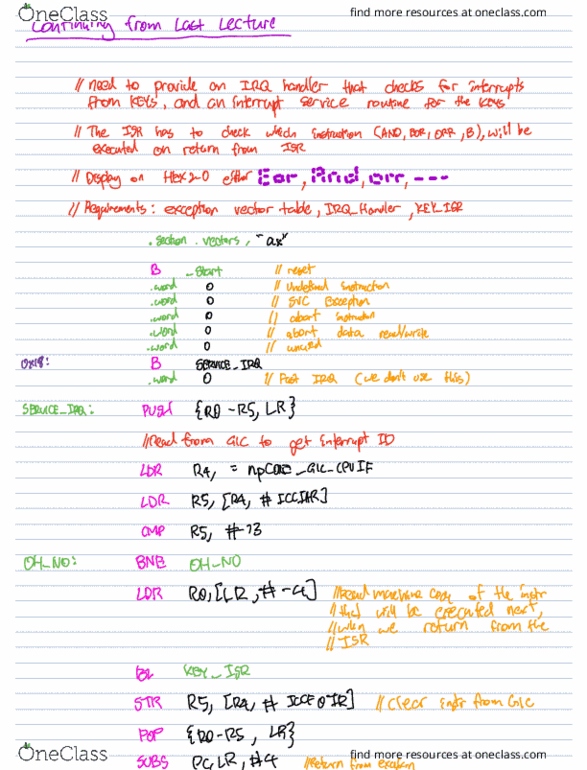 OneClass
find more resources at oneclass.com
Continuing from Last Lecture
// need to provide an IRQ handler that checks for interrupts
from KEYs, and an interrupt service routine for the KEYs
// The ISR has to check which instruction (AND, EOR, ORR, B), will be
executed on return from ISR
// Display on Hex2-0 either Eor, And, orr, ---
// Requirements: exception vector table, IRQ_Handler, KEY_ISR
.section .vectors, "ax"
B _start // reset
.word 0 // Undefined instruction
.word 0 // SVC Exception
.word 0 // abort instruction
.word 0 // abort data read/write
.word 0 // unused
0x18: B SERVICE_IRQ
.word 0 // Fast IRQ (we don't use this)
SERVICE_IRQ: PUSH {R0-R5, LR}
//Read from GIC to get interrupt ID
LDR R4, = MPCORE_GIC_CPUIF
LDR R5, [R4, # ICCIAR]
CMP R5, #73
OH_NO: BNE OH_NO
LDR R0, [LR, #-4] //Read machine code of the instr
// that will be executed next,
// when we return from the
// ISR
BL KEY_ISR
STR R5, [R4, # ICCEOIR] // Clear intr from GIC
POP {R0-R5, LR}
SUBS PC, LR, #4 //Return from exception
OneClass
find more resources at oneclass.com